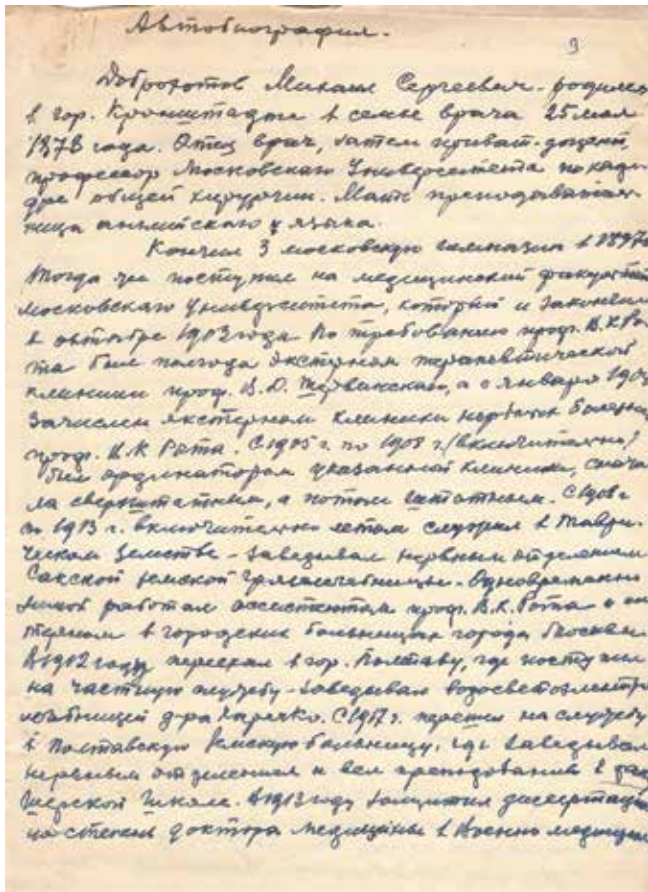 Автобиография.
3
Доброхотов Михаил Сергеевич - родился
в гор. Кронштадте в семье врача 25 мая
1878 года. Отец врач, затем приват-доцент,
профессор Московского Университета по кафе-
дре общей хирургии. Мать преподаватель-
ница английского языка.
Кончил 3 московскую гимназию в 1897
Тогда же поступил на медицинский факультет
Московского Университета, который и закончил
в октябре 1903 года. По требованию проф. В.К. Ро-
та был полгода экстерном терапевтической
клиники проф. В.Д. а с января 190
зачислен экстерном клиники нервных болезней
проф. В.К. Рота. С 1905 г. по 1908 г. (включительно)
был ординатором указанной клиники, снача-
ла сверхштатным, а потом штатным. С 1908 г.
по 1913 г. включительно летом служил в Таври-
ческом Земстве - заведывал нервным отделением
Сакской земской грязелечебницы. Одновременно
зимой работал ассистентом проф. В.К. Рота и
в городских больницах города Москвы.
В 1912 году переехал в гор. Полтаву, где поступил
на частную службу - заведывал водосветоэлектро
лечебницей д-ра С 1917 г. перешел на службу
в Полтавскую Земскую больницу, где заведывал
нервным отделением и вел преподавание в фель
шерской школе. В 1913 году защитил диссертацию
на степень доктора медицины в Военно медицин